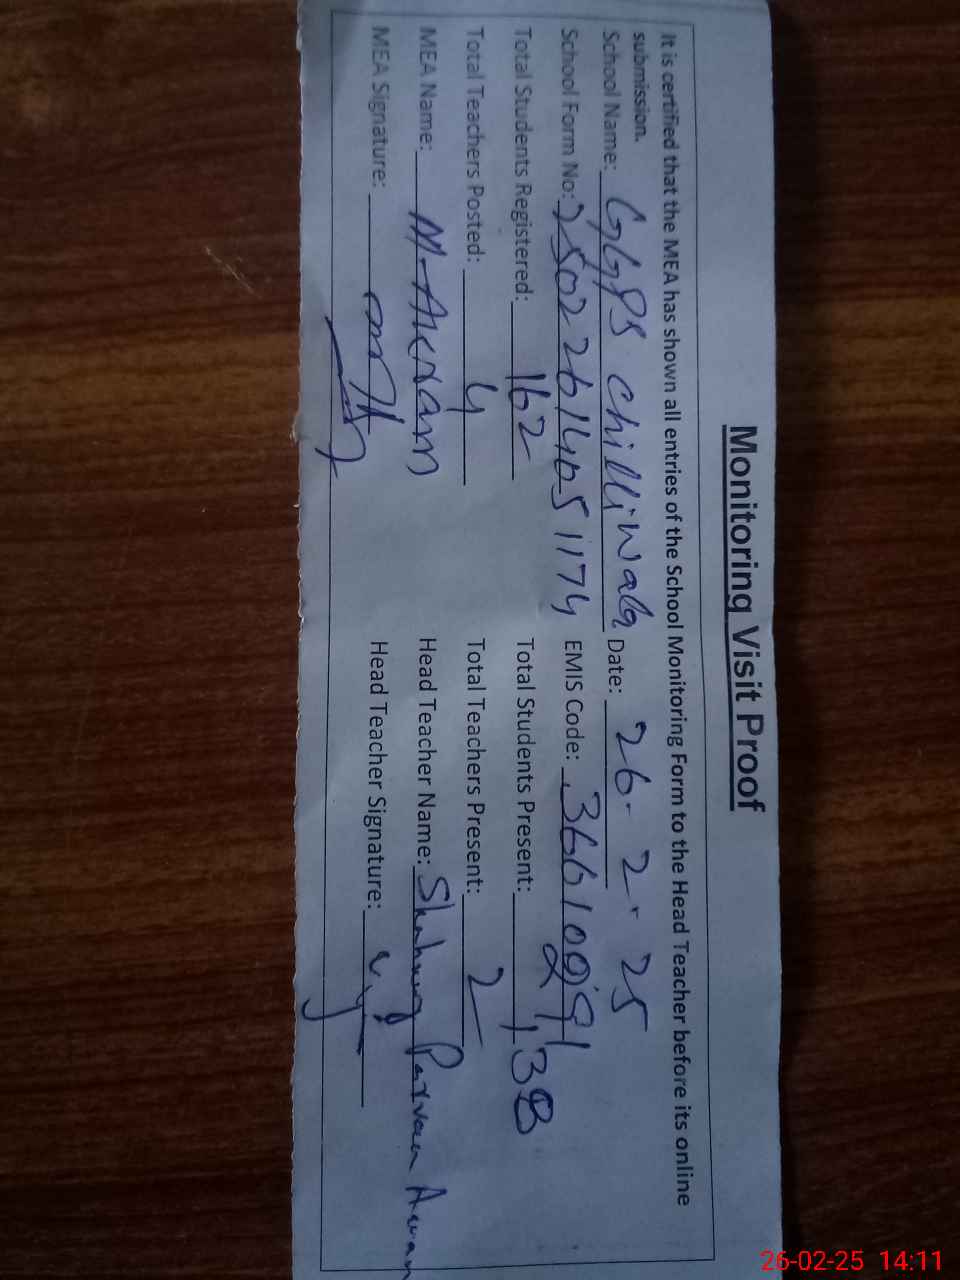 Monitoring Visit Proof
It is certified that the MEA has shown all entries of the School Monitoring Form to the Head Teacher before its online
submission.
School Name: GGPS Chilliwala Date: 26-2-25
School Form No: 25022614051174 EMIS Code: 36610091
Total Students Registered: 162 Total Students Present: 138
Total Teachers Posted: 4 Total Teachers Present: 2
MEA Name: M-Akram Head Teacher Name: Shahnaz Parveen Awan
MEA Signature: Head Teacher Signature:
26-02-25 14:11